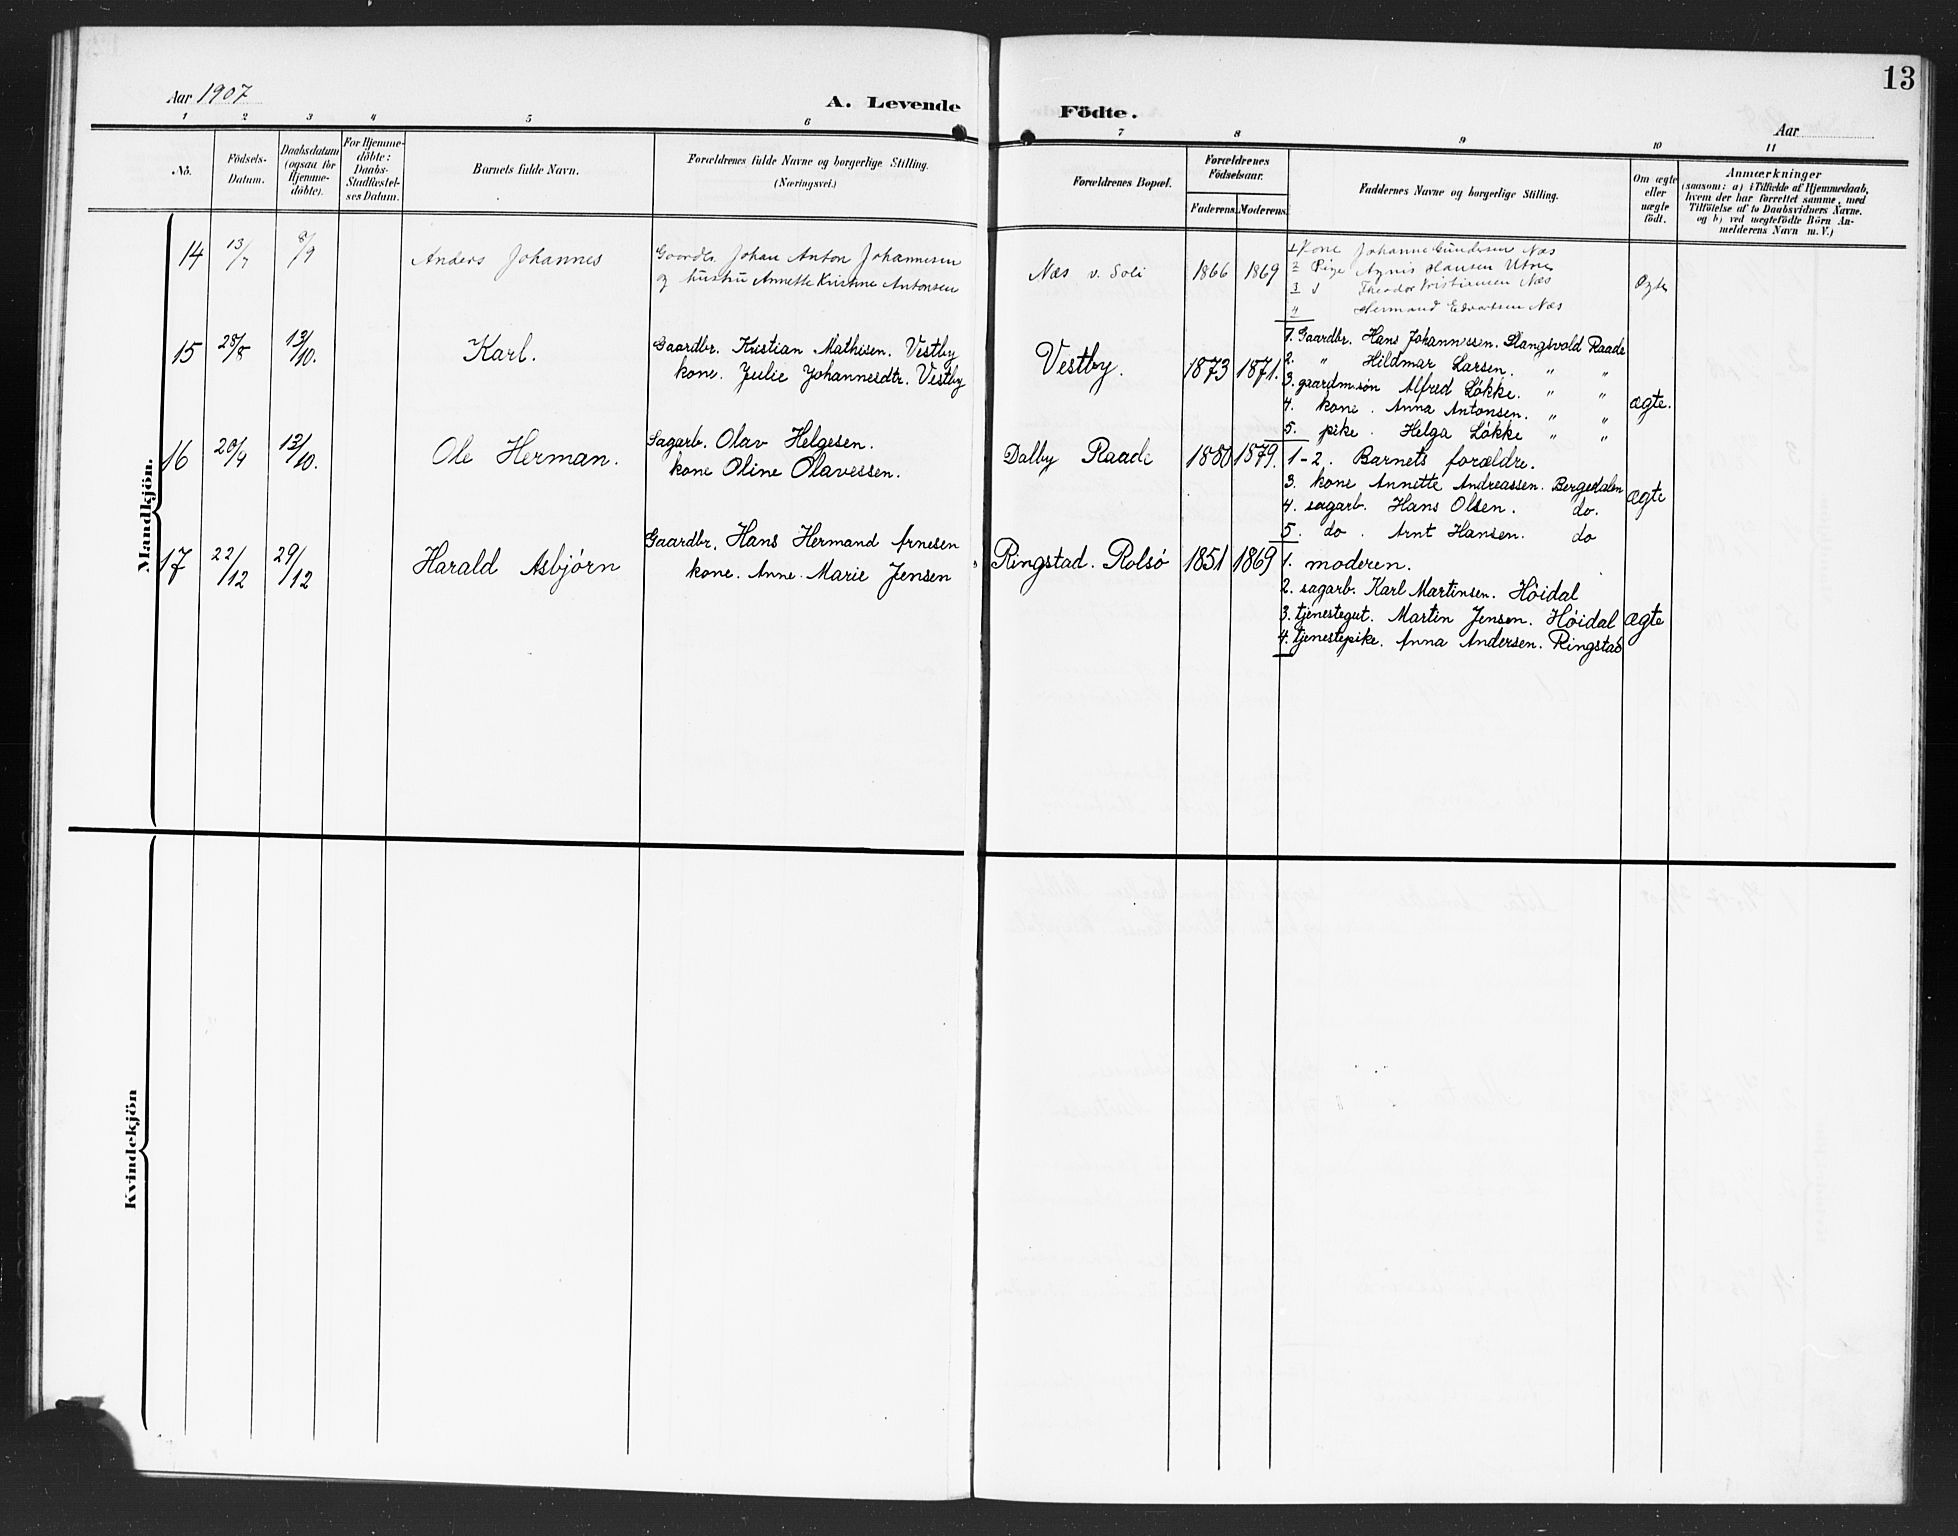 13
Aar 1907
A. Levende
Födte.
Aar
1 2 3 4 5 6 7 8 9 10 11
No.
Födsels-
Datum.
Daabsdatum
(ogsaa for
Hjemme-
döbte).
For Hjemme-
döbte:
Daabs-
Stadfæstel-
ses Datum.
Barnets fulde Navn.
Forældrenes fulde Navne og borgerlige Stilling.
(Næringsvei.)
Forældrenes Bopæl.
Forældrenes
Födselsaar.
Faderens.
Moderens.
Faddernes Navne og borgerlige Stilling.
Om ægte
eller
uægte
født.
Anmærkninger
(saasom: a) i Tilfælde af Hjemmedaab,
hvem der har forrettet samme, med
Tilföielse af to Daabsvidners Navne.
og b) ved uægtefödte Börn An-
melderens Navn m. V.)
Mandkjön.
14 13/7 8/9 Anders Johannes
Gaardbr. Johan Anton Johannesen
og hustru Annette Kristine Antonsen
Næs v. Soli 1866 1869
1 Kone Johanne Gundersen Næs
2 Pige Agnis Hansen Utne
3 Theodor Kristiansen Næs
4 Hermand Edvartsen Næs
Ægte
15 28/8 13/10. Karl.
Gaardbr. Kristian Mathisen. Vestby
kone. Julie Johannesdtr. Vestby
Vestby. 1873 1871.
1. Gaardbr. Hans Johannessen. Slangsvold Raade
2. " Hildmar Larsen. " "
3. gaardm.søn Alfred Løkke. " "
4. kone. Anna Antonsen. " "
5. pike. Helga Løkke " "
ægte.
16 20/9 13/10. Ole Herman.
Sagarb. Olav Helgesen.
kone Oline Olavessen.
Dalby Raade 1880 1879.
1-2. Barnets forældre.
3. kone Annette Andreassen. Bergsdalen
4. sagarb. Hans Olsen. do.
5. do. Arnt Hansen. do
ægte
17 22/12 29/12 Harald Asbjørn
Gaardbr. Hans Hermand Arnesen
kone. Anne Marie Jensen
Ringstad. Rolsö 1851 1869
1. moderen.
2. sagarb. Karl Martinsen. Höidal
3. tjenestegut. Martin Jensen. Höidal
4. tjenestepike. Anna Andersen. Ringstad
ægte
Kvindekjön